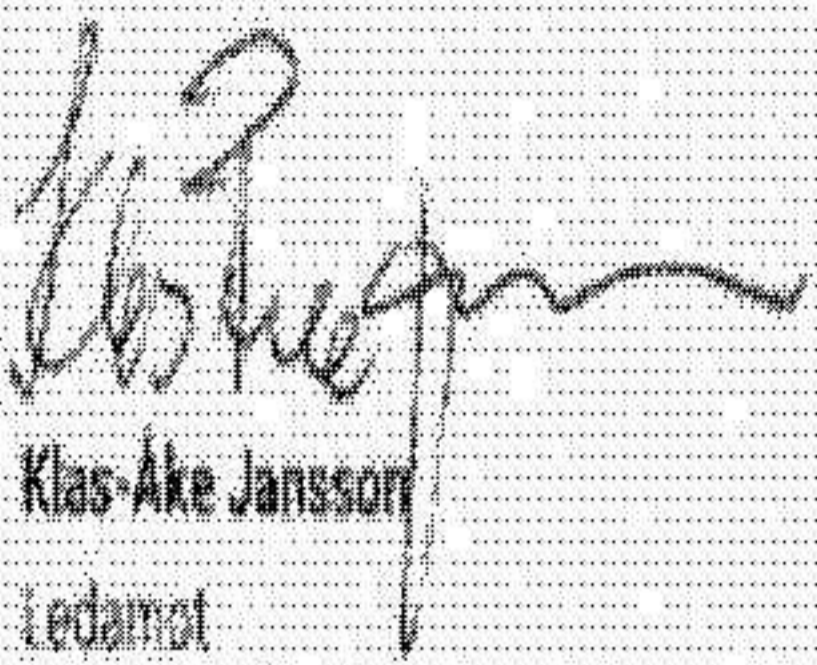 Klas-Åke Jansson
Ledamot